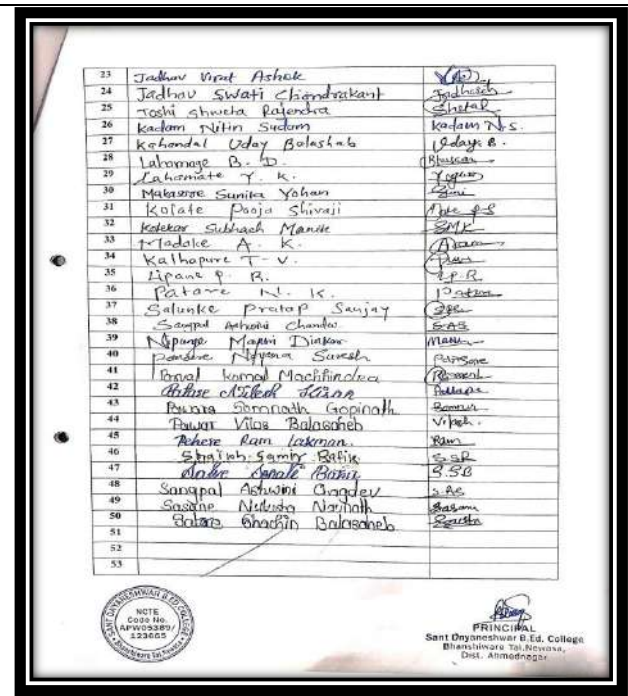 23 Jadhav Virat Ashok
24 Jadhav Swati Chandrakant Jadhavsch
25 Joshi Shweta Rajendra
26 Kadam Nitin Sudam Kadam N.S.
27 Kahandal Uday Balashab Uday B.
28 Lahamage B. D. Bhuskar
29 Lahamate Y. K.
30 Makasare Sunita Yohan
31 Kolate Pooja Shivaji
32 Kolekar Subhash Manik SMK
33 Madake A. K.
34 Kalhapure T-V.
35 Lipane P. R. L.P.R
36 Patare N. K.
37 Salunke Pratap Sanjay
38 Sangpal Ashwini Chandev S.A.S
39 Nipunge Mohini Diakar
40 Nayana Suresh
41 Komal Machhindra
42 Nilesh Kisan
43 Pawara Somnath Gopinath
44 Pawar Vilas Balasaheb Vilash.
45 Pehere Ram Laxman. Ram
46 Shaikh Samir Rafik S.S.R
47 S.S.B
48 Sangpal Ashwini Changdev S.AS
49 Sasane Navnath
50 Sachin Balasaheb
51
52
53
SANT DNYANESHWAR B.ED. COLLEGE
NCTE
Code No.
APW05389/
123665
Bhanshiware Tal.Newasa
PRINCIPAL
Sant Dnyaneshwar B.Ed. College
Bhanshiware Tal.Newasa,
Dist. Ahmednagar